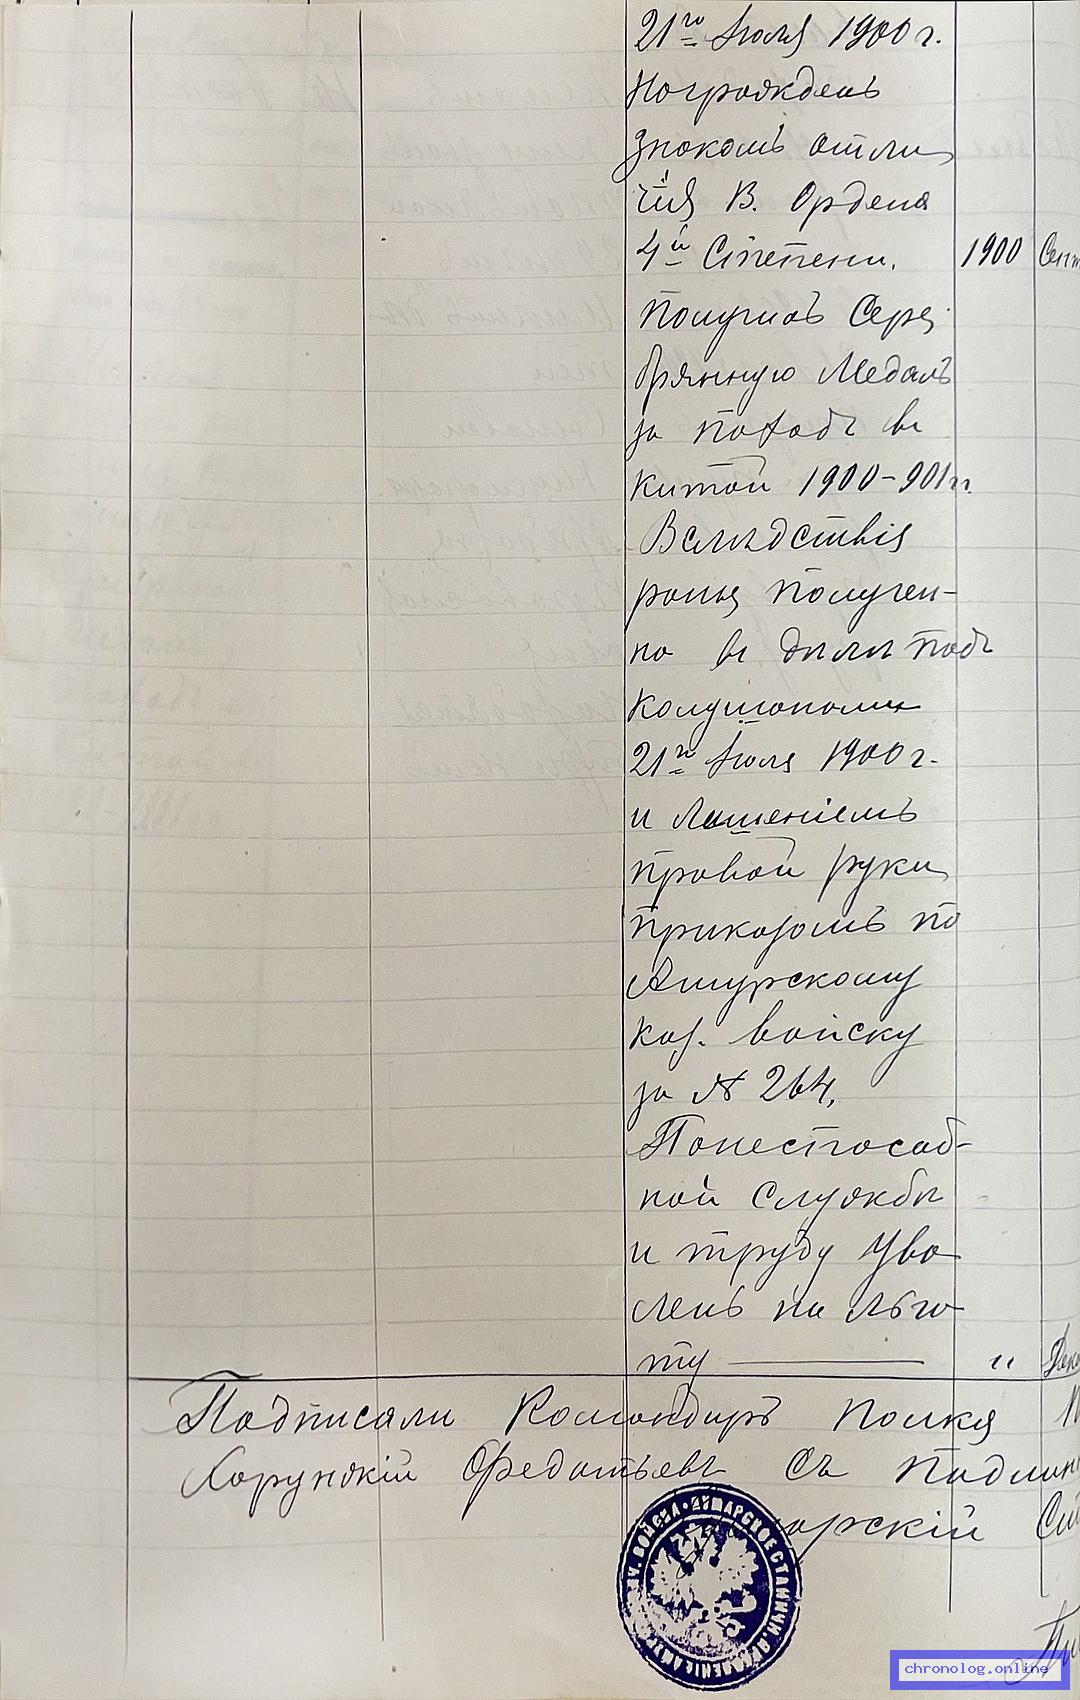 21го Июля 1900 г.
Награжденъ
знакомъ отли
чія В. Ордена
4й Степени. 1900
Получилъ Сере
брянную Медаль
за Походъ въ
китай 1900-901 гг.
Вслѣдствія
раны получен-
но въ дѣлѣ подъ
21го Июля 1900 г.
и Лишеніемъ
правой руки
приказомъ по
Амурскому
каз. войску
за № 264,
Понеспособ-
ной службы
и труду Уво-
ленъ на льго-
ту — "
Подписали Командиръ Полка
Хорунжій Федотьевъ Съ Подлин
арскій
chronolog.online